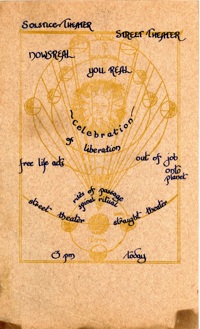 SOLSTICE THEATER
STREET THEATER
NOWSREAL
YOU REAL
Celebration
of
liberation
free life acts
out of job
onto
planet
rites of passage
spiral ritual
street theater
straught theater
8 pm
today